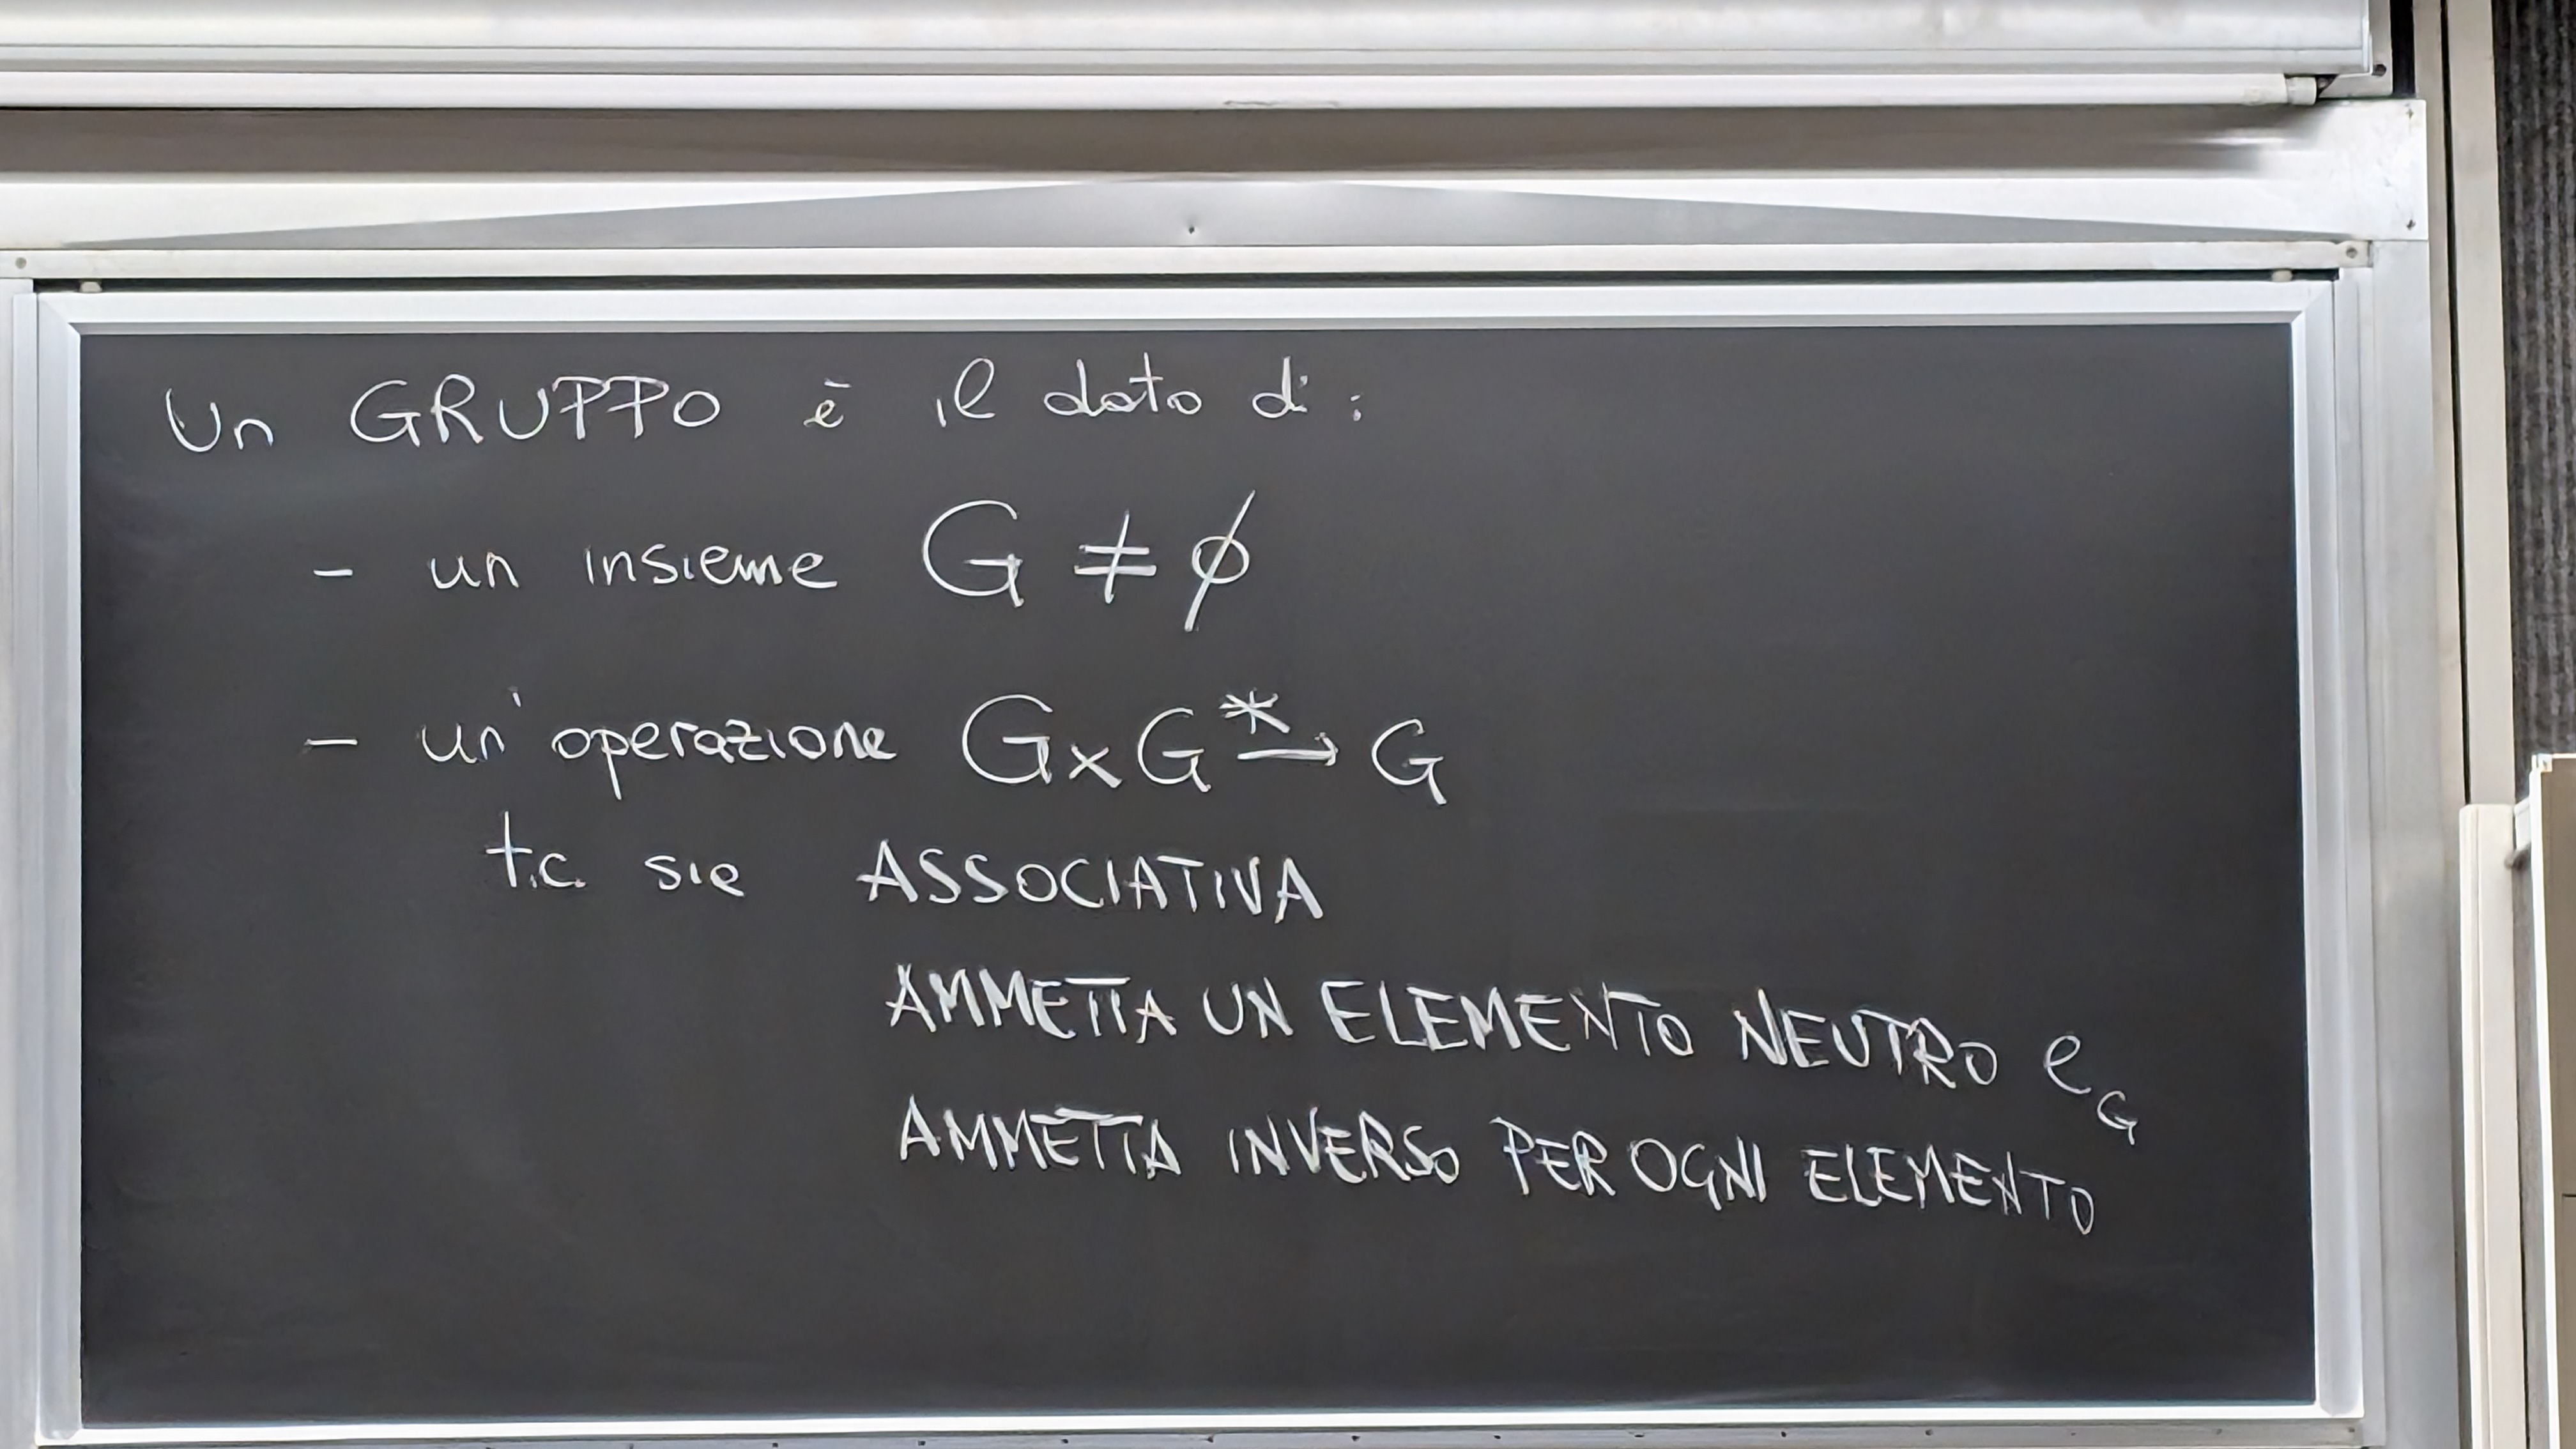 Un GRUPPO è il dato di:
- un insieme G ≠ ∅
- un'operazione G×G *→ G
t.c. sia ASSOCIATIVA
AMMETTA UN ELEMENTO NEUTRO e_G
AMMETTA INVERSO PER OGNI ELEMENTO